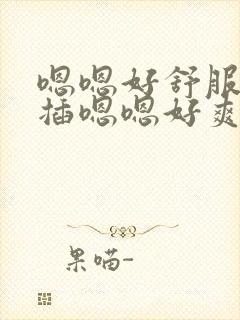 嗯嗯好舒服
插嗯嗯好爽
果喵-